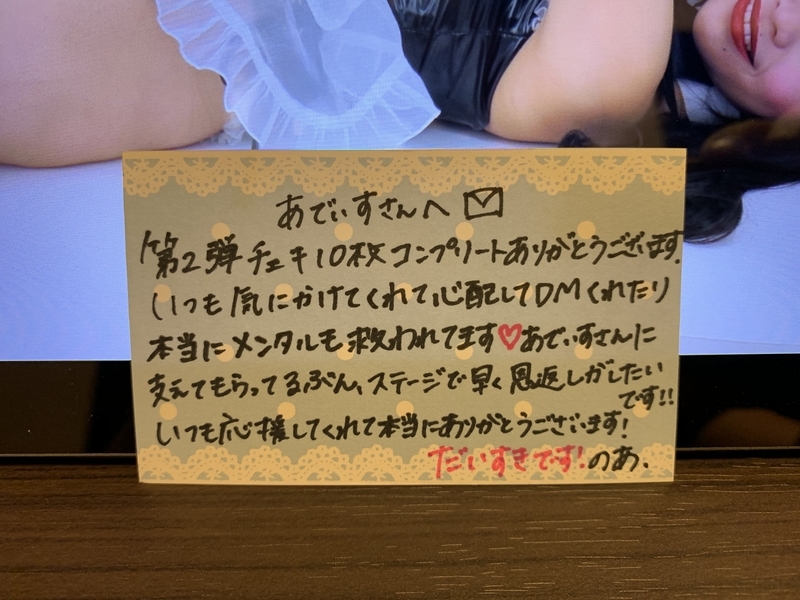 あでぃすさんへ
第2弾チェキ10枚コンプリートありがとうございます.
いつも気にかけてくれて心配してDMくれたり
本当にメンタルも救われてます♡あでぃすさんに
支えてもらってるぶん、ステージで早く恩返しがしたい
です!!
いつも応援してくれて本当にありがとうございます!
だいすきです!のあ.